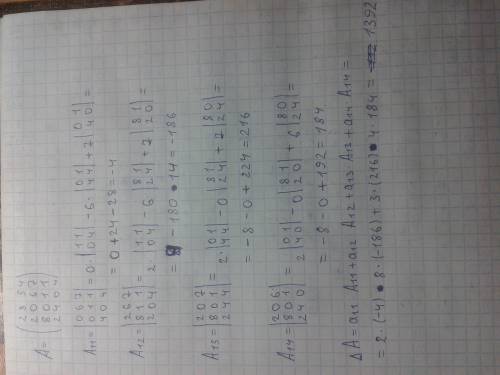 A = ( 2 8 3 4
2 0 6 7
8 0 1 1
2 4 0 4 )
A11 = | 0 6 7
0 1 1
4 0 4 | = 0· | 1 1
0 4 | - 6· | 0 1
4 4 | + 7 | 0 1
4 0 | =
= 0 + 24 - 28 = -4
A12 = | 2 6 7
8 1 1
2 0 4 | = 2· | 1 1
0 4 | - 6 | 8 1
2 4 | + 7 | 8 1
2 0 | =
= - 180 • 14 = -186
A13 = | 2 0 7
8 0 1
2 4 4 | = 2· | 0 1
4 4 | - 0 | 8 1
2 4 | + 7 | 8 0
2 4 | =
= -8 - 0 + 224 = 216
A14 = | 2 0 6
8 0 1
2 4 0 | = 2 | 0 1
4 0 | - 0 | 8 1
2 0 | + 6 | 8 0
2 4 | =
= -8 - 0 + 192 = 184
ΔA = a11 A11 + a12 A12 + a13 A12 + a14 A14 =
= 2·(-4) • 8·(-186) + 3·(216) • 4·184 = 1392